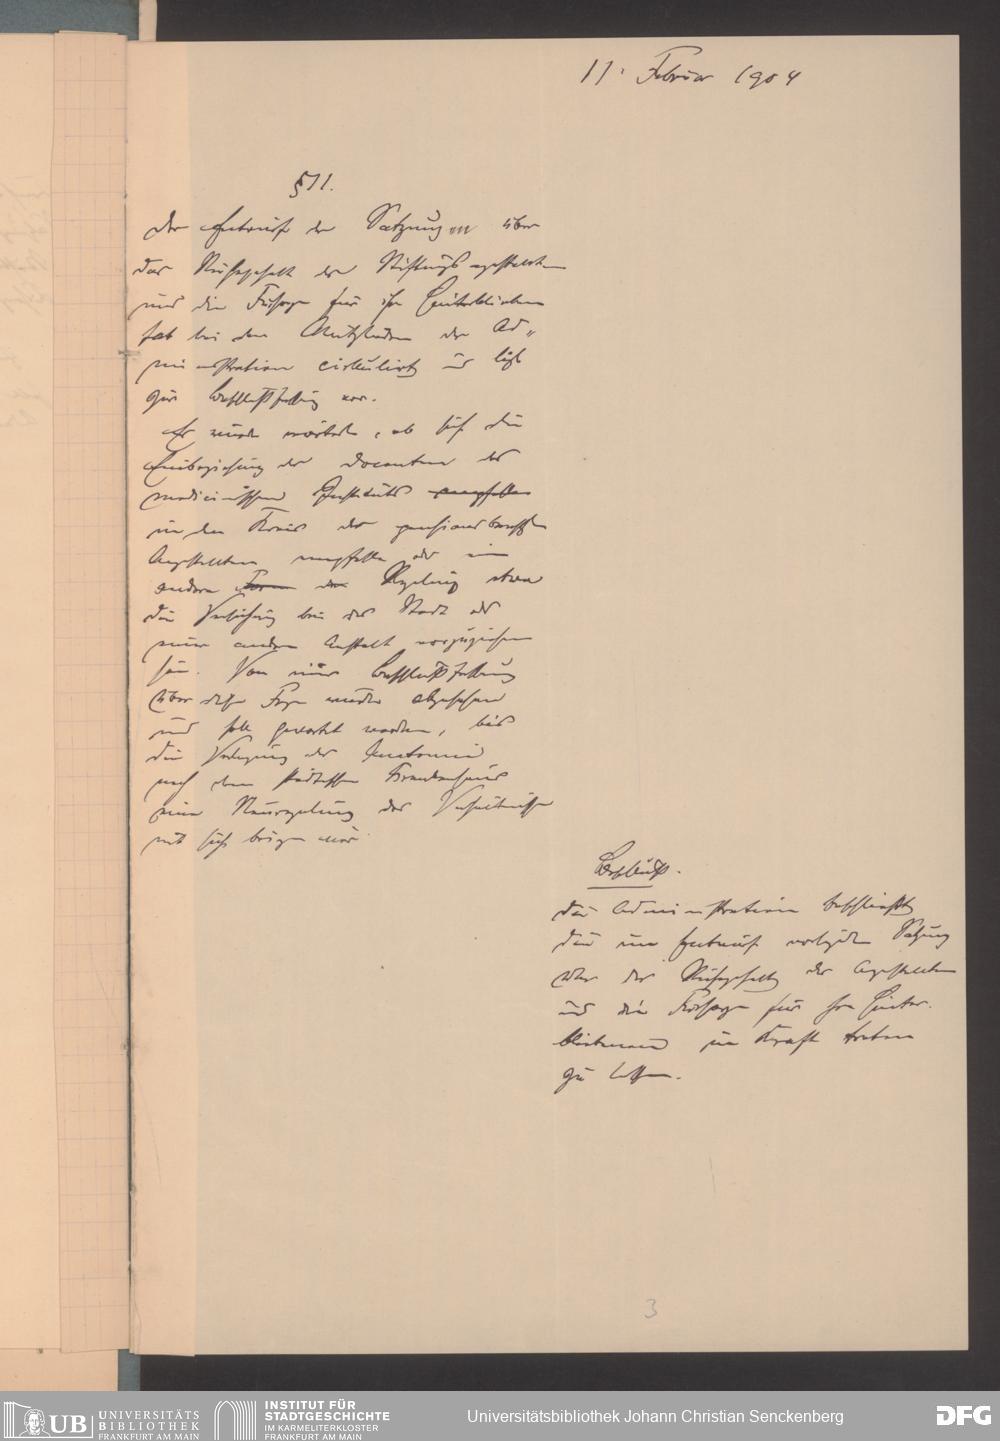 11. Februar 1904
§ 11.
Der Entwurf der Satzungen über
das Ruhegehalt der Stiftungsangestellten
und die Fürsorge für ihre Hinterbliebenen
hat bei den Mitgliedern der Ad-
ministration cirkulirt und liegt
zur Beschlußfassung vor.
Es wurde erörtert, ob sich die
Einbeziehung der Docenten des
medicinischen Instituts empfehle
in den Kreis der pensionsberechtigten
Angestellten empfehle oder eine
andere Form der Regelung etwa
die Versicherung bei der Stadt oder
einer andern Anstalt vorzuziehen
sei. Von einer Beschlußfassung
über diese Frage wurde abgesehen
und soll gewartet werden, bis
die Verlegung der Anatomie
nach dem städtischen Krankenhaus
eine Neuregelung der Verhältnisse
mit sich bringen wird.
Beschluß.
Die Administration beschließt
die im Entwurf vorliegenden Satzungen
über das Ruhegehalt der Angestellten
und die Fürsorge für ihre Hinter-
bliebenen in Kraft treten
zu lassen.
3
UB UNIVERSITÄTS
BIBLIOTHEK
FRANKFURT AM MAIN
INSTITUT FÜR
STADTGESCHICHTE
IM KARMELITERKLOSTER
FRANKFURT AM MAIN
Universitätsbibliothek Johann Christian Senckenberg
DFG